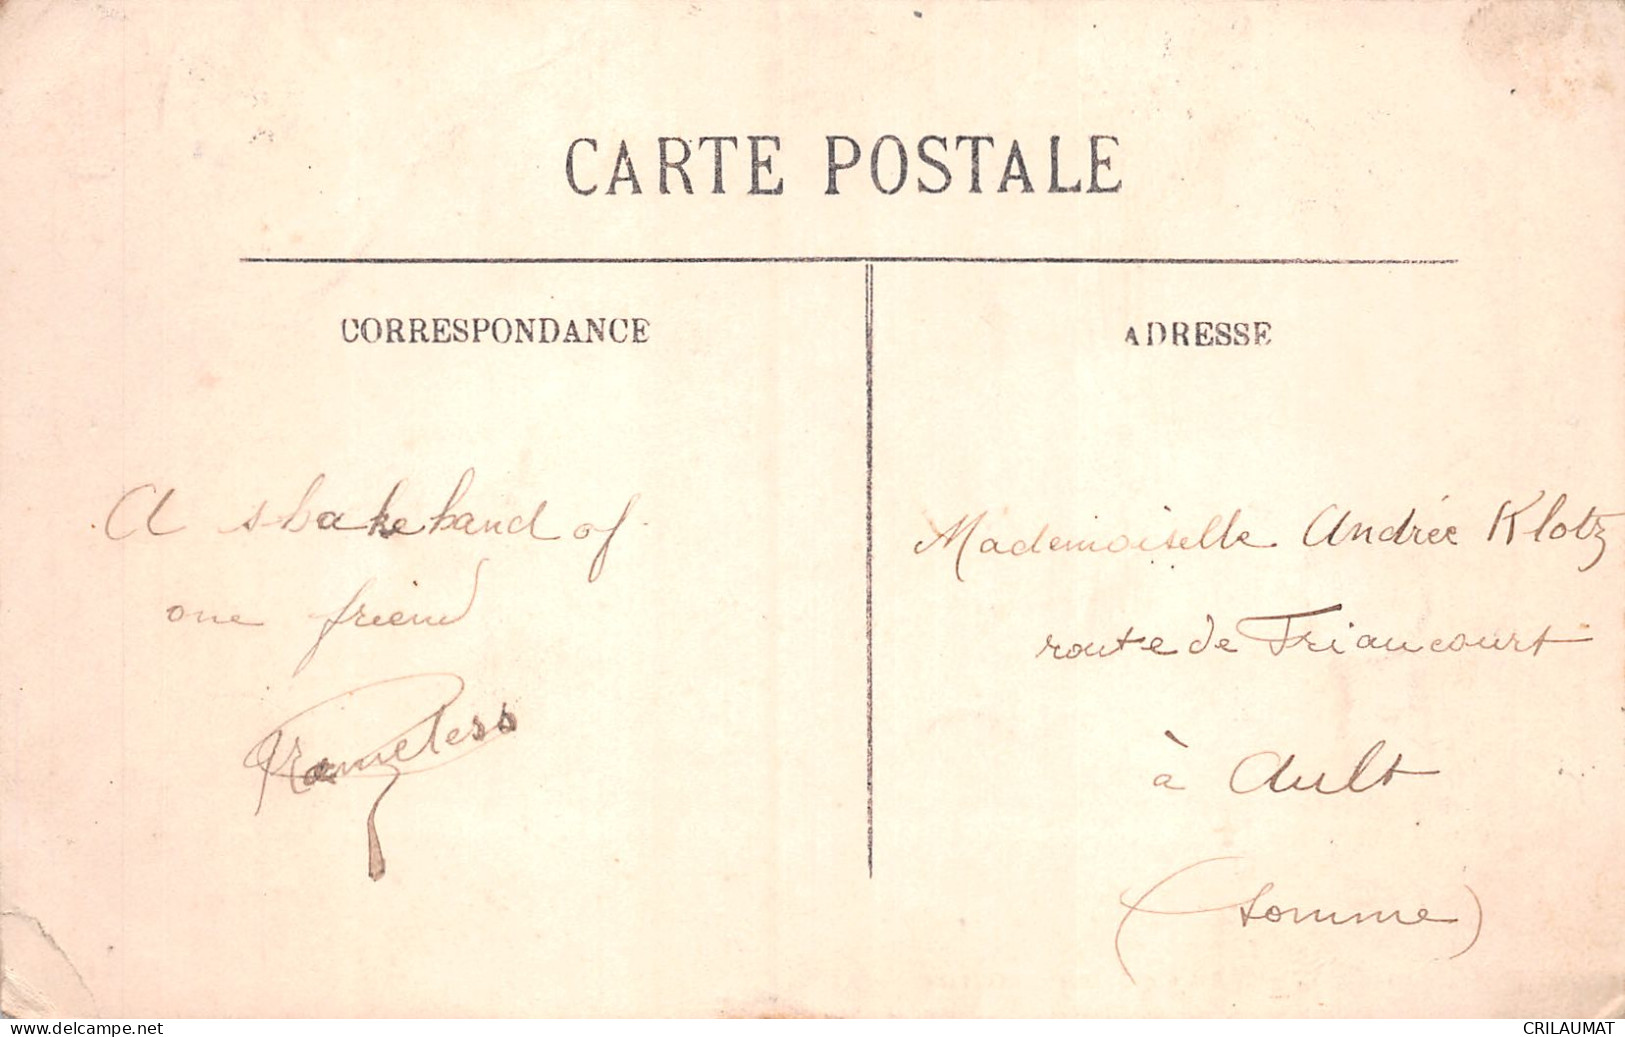 CARTE POSTALE
CORRESPONDANCE
A shakehand of
one friend
ADRESSE
Mademoiselle Andrée Klotz
route de Friaucourt
à Ault
(Somme)
www.delcampe.net
CRILAUMAT